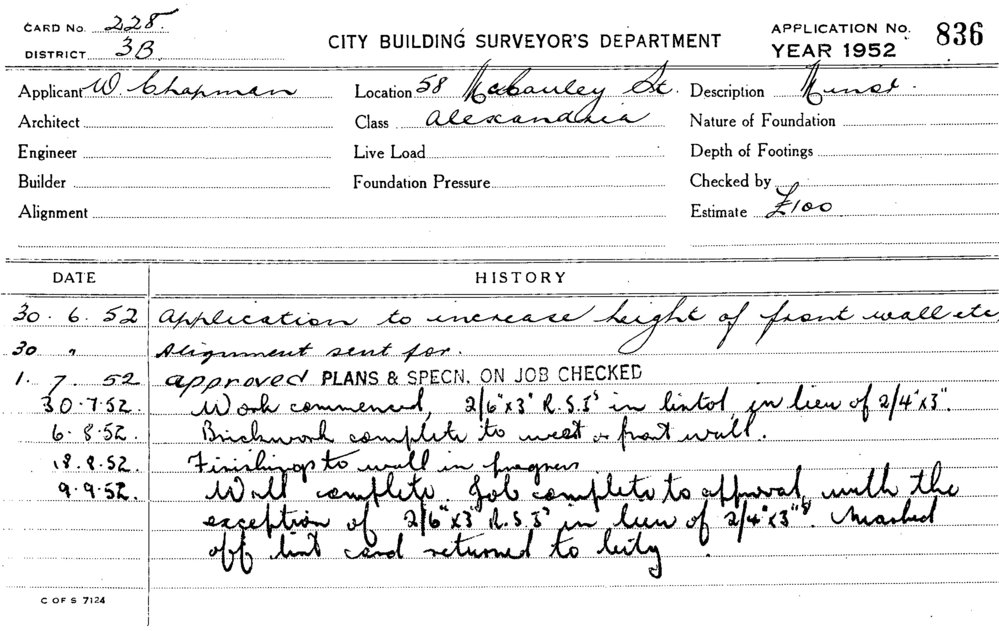 CARD No. 228.
DISTRICT 3B
CITY BUILDING SURVEYOR'S DEPARTMENT
APPLICATION No. 836
YEAR 1952
Applicant W. Chapman Location 58 Macauley St. Description
Architect Class Alexandria Nature of Foundation
Engineer Live Load Depth of Footings
Builder Foundation Pressure Checked by
Alignment Estimate £100
DATE HISTORY
30. 6. 52 Application to increase height of front wall etc.
30 " Alignment sent for.
1. 7. 52 approved PLANS & SPECN. ON JOB CHECKED
30.7.52. Work commenced, 2/6"x3" R.S.Js in lintol, in lieu of 2/4"x3".
6.8.52. Brickwork complete to west & front wall.
18.8.52. Finishings to wall in progress
9.9.52. Wall complete. Job complete to approval, with the
exception of 2/6"x3" R.S.Js in lieu of 2/4"x3"s. Marked
off list card returned to City.
C OF S 7124